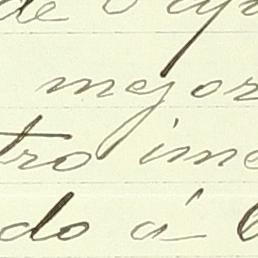 de
mejor
tro ime
do á